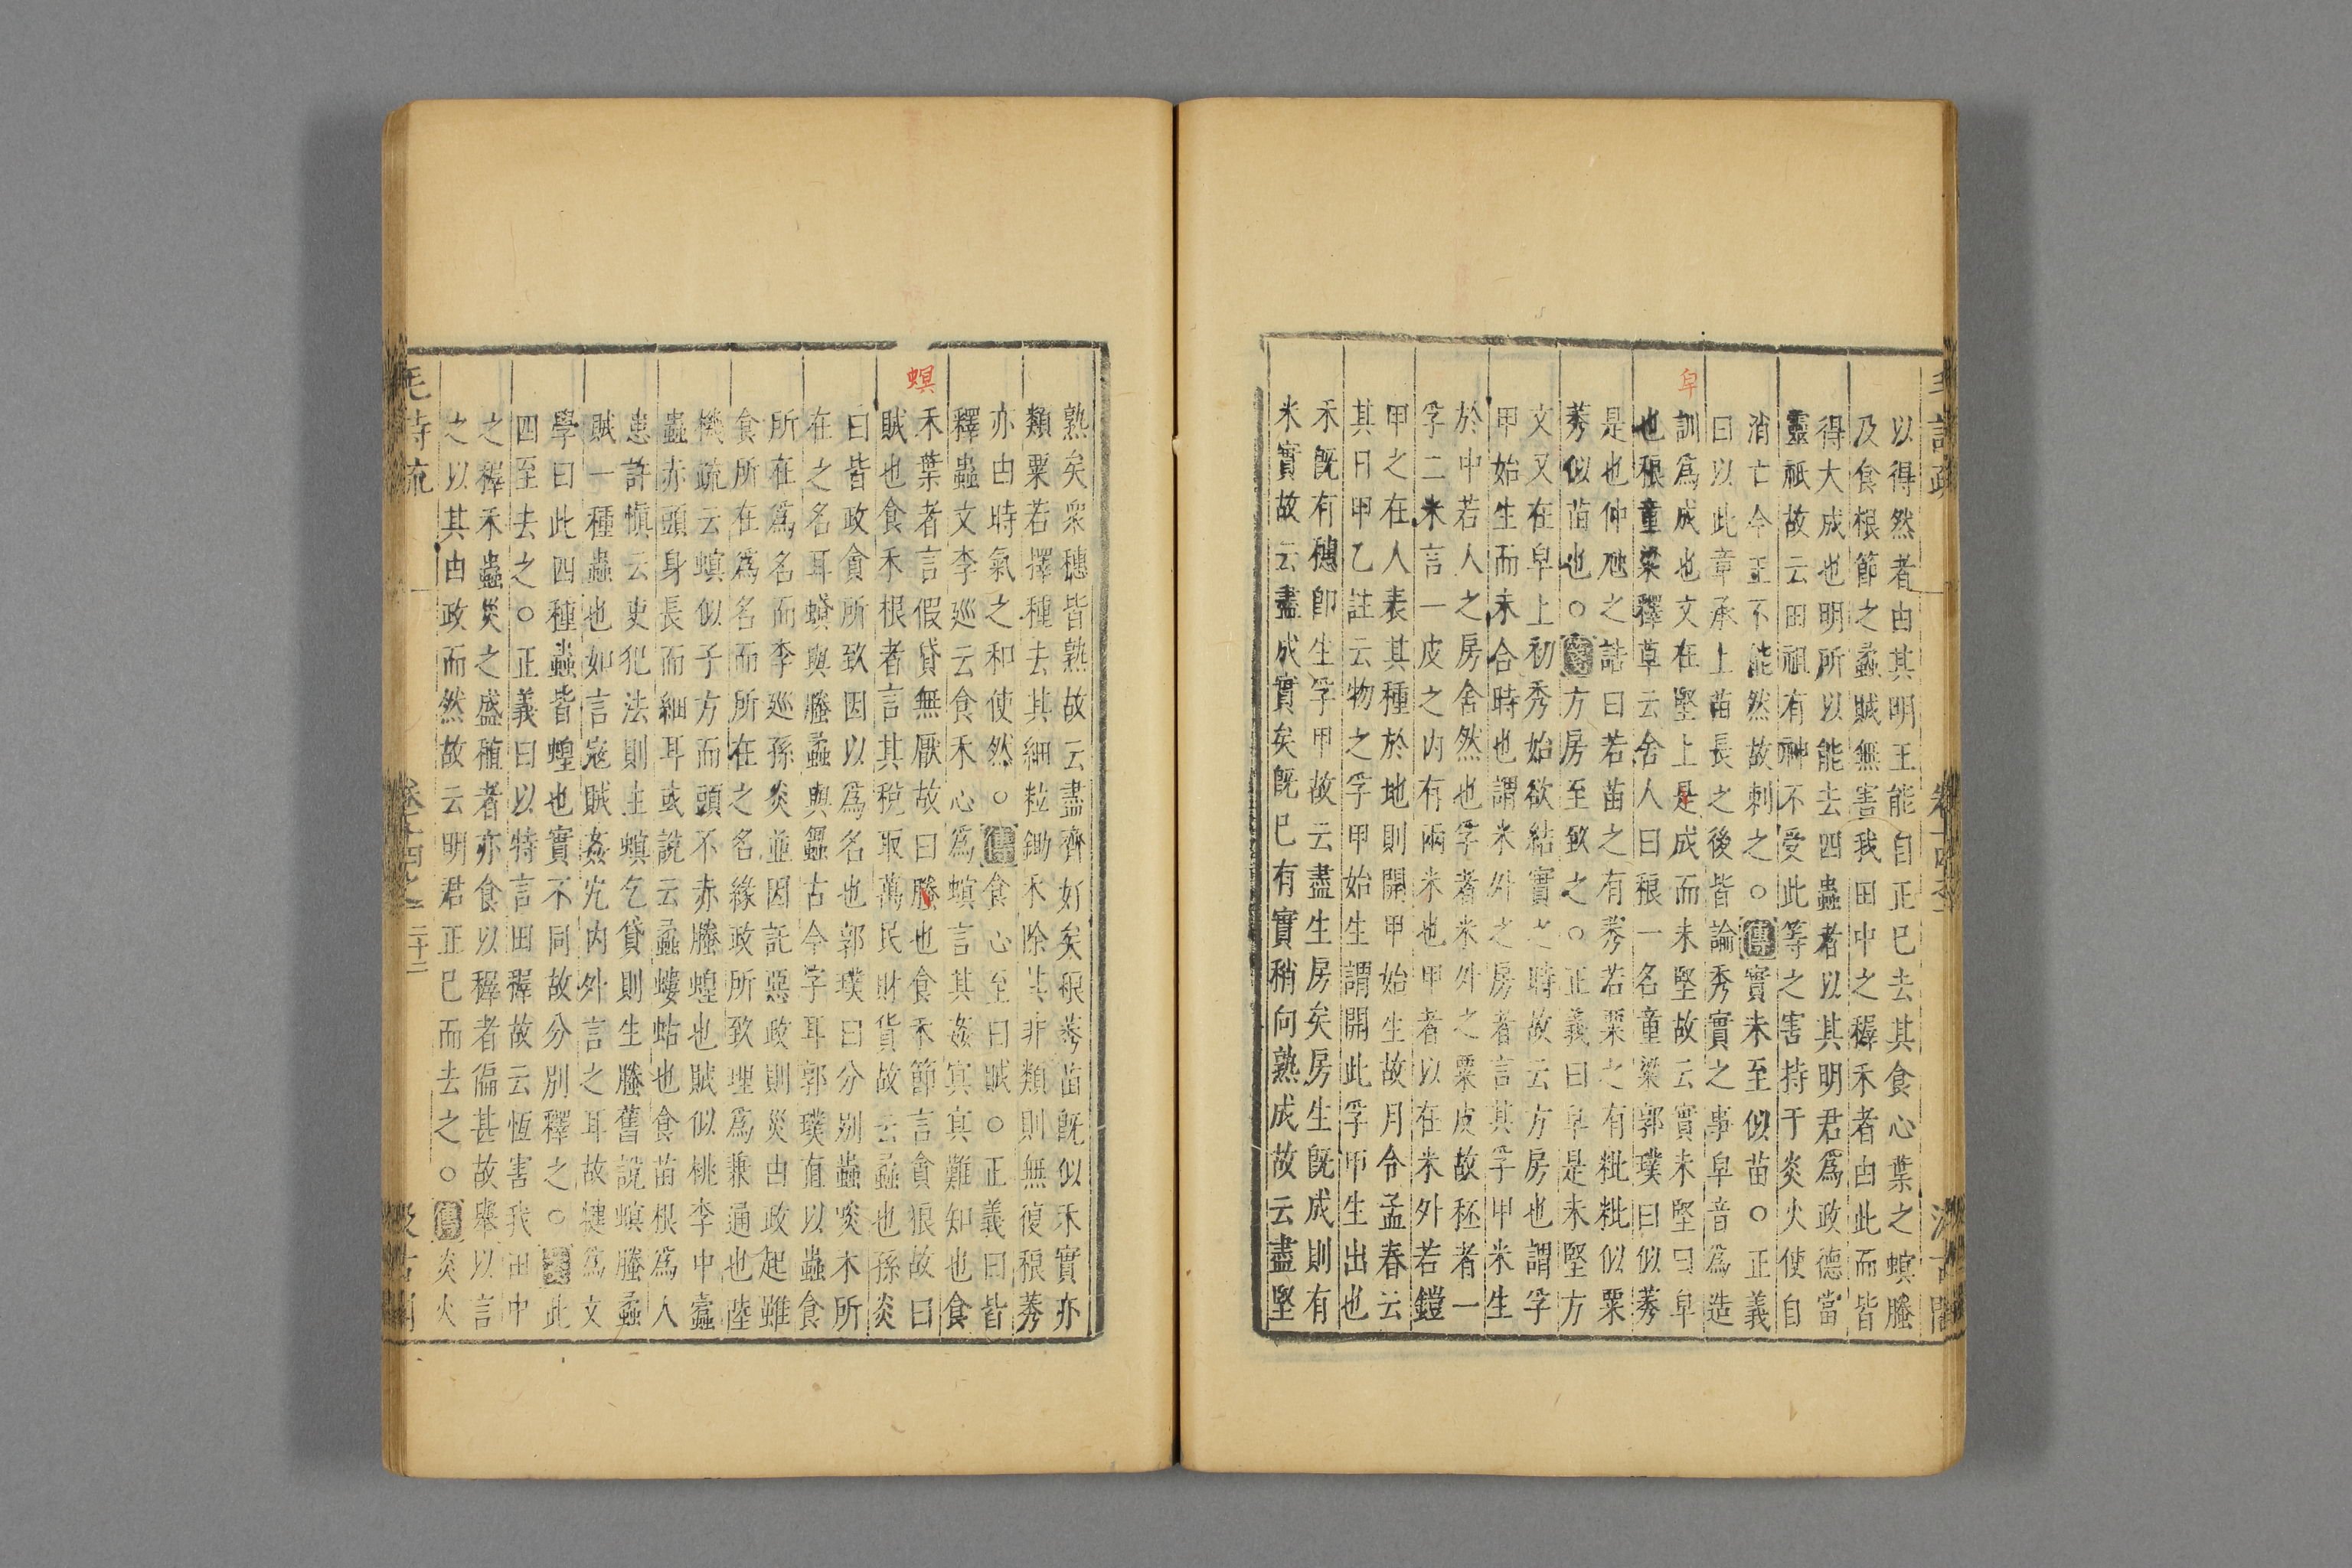 以得然者由其明王能自正巳去其食心葉之螟螣
及食根節之蟊賊無害我田中之穉禾者由此而皆
得大成也明所以能去四蟲者以其明君爲政德當
靈祇故云田祖有神不受此等之害持于炎火使自
消亡今王不能然故刺之○傳實未至似苗○正義
曰以此章承上苗長之後皆論秀實之事皁音爲造
訓爲成也文在堅上是成而未堅故云實未堅曰皁
也稂童粱釋草云舍人曰稂一名童粱郭璞曰似莠
是也仲虺之誥曰若苗之有莠若粟之有秕秕似粟
莠似苗也○箋方房至致之○正義曰皁是未堅方
文又在皁上初秀始欲結實之時故云方房也謂孚
甲始生而未合時也謂米外之房者言其孚甲米生
於中若人之房舍然也孚者米外之粟皮故秠者一
孚二米言一皮之内有兩米也甲者以在米外若鎧
甲之在人表其種於地則開甲始生故月令孟春云
其日甲乙註云物之孚甲始生謂開此孚甲生出也
禾既有穗即生孚甲故云盡生房矣房生既成則有
米實故云盡成實矣既巳有實稍向熟成故云盡堅
皁
熟矣衆穗皆熟故云盡齊好矣稂莠苗既似禾實亦
類粟若擇種去其細粒鋤禾除其非類則無復稂莠
亦由時氣之和使然○傳食心至曰賊○正義曰皆
釋蟲文李巡云食禾心爲螟言其姦冥冥難知也食
禾葉者言假貸無厭故曰螣也食禾節言貪狠故曰
賊也食禾根者言其稅取萬民財貨故云蟊也孫炎
曰皆政貪所致因以爲名也郭璞曰分别蟲啖木所
在之名耳螟與螣蟊與蟲古今字耳郭璞直以蟲食
所在爲名而李巡孫炎並因託惡政則災由政起雖
食所在爲名而所在之名緣政所致理爲兼通也陸
機疏云螟似子方而頭不赤螣蝗也賊似桃李中蠹
蟲赤頭身長而細耳或說云蟊螻蛄也食苗根爲人
患許慎云吏犯法則生螟乞貸則生螣舊說螟螣蟊
賊一種蟲也如言寇賊姦宄内外言之耳故犍爲文
學曰此四種蟲皆蝗也實不同故分别釋之○箋此
四至去之○正義曰以特言田穉故云恆害我田中
之穉禾蟲災之盛稙者亦食以穉者偏甚故舉以言
之以其由政而然故云明君正巳而去之○傳炎火
毛詩疏 卷十四之一 二十二
螟